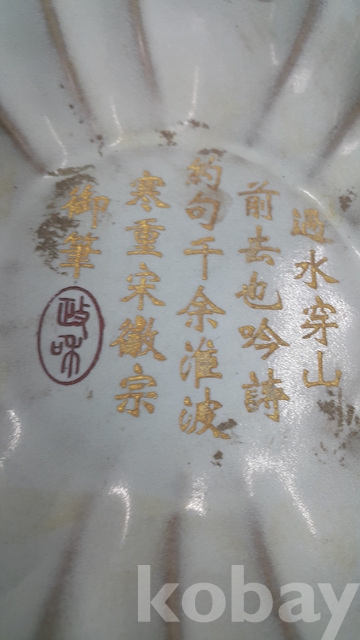 過水穿山
前去也吟詩
約句千余淮波
寒重宋徽宗
御筆
政和
kobay